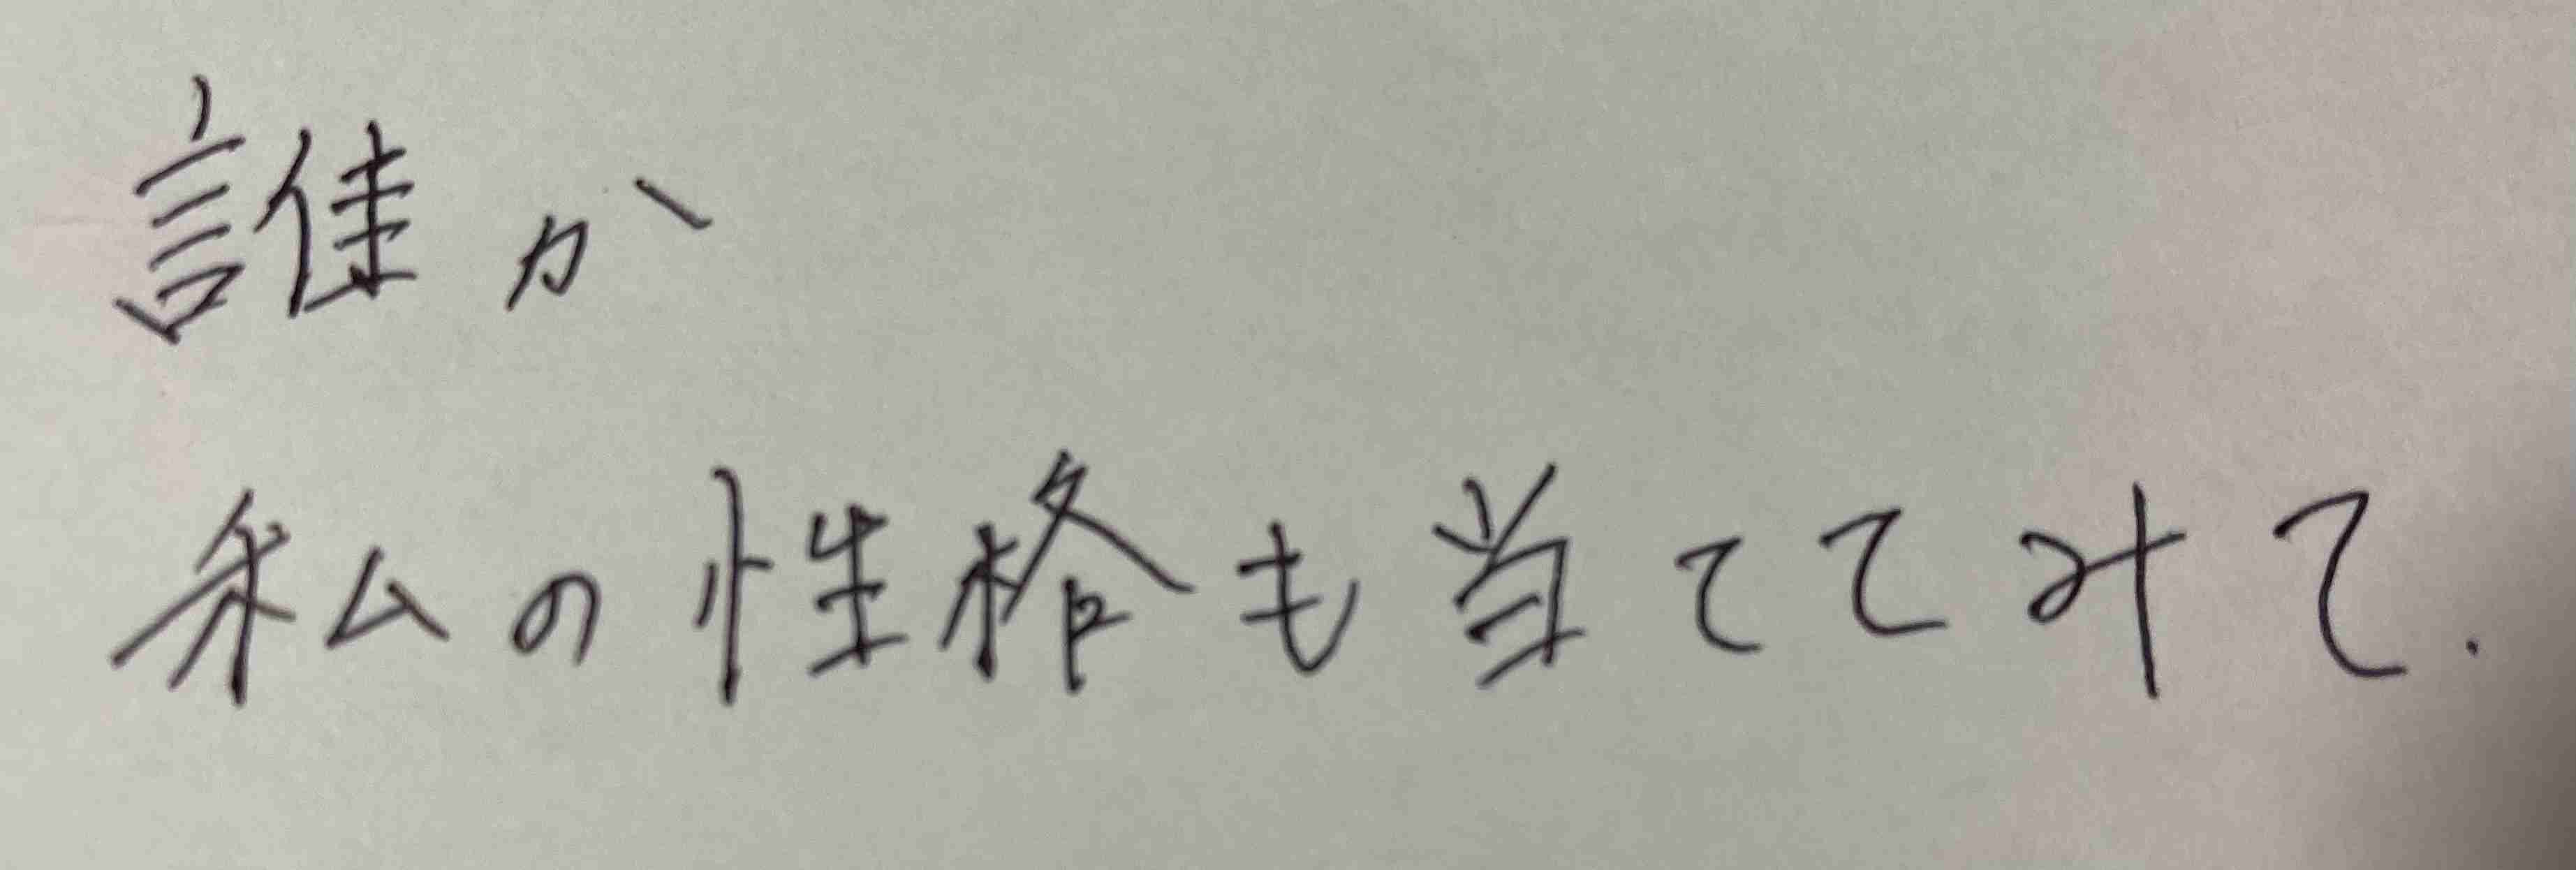 誰か
私の性格も当ててみて.